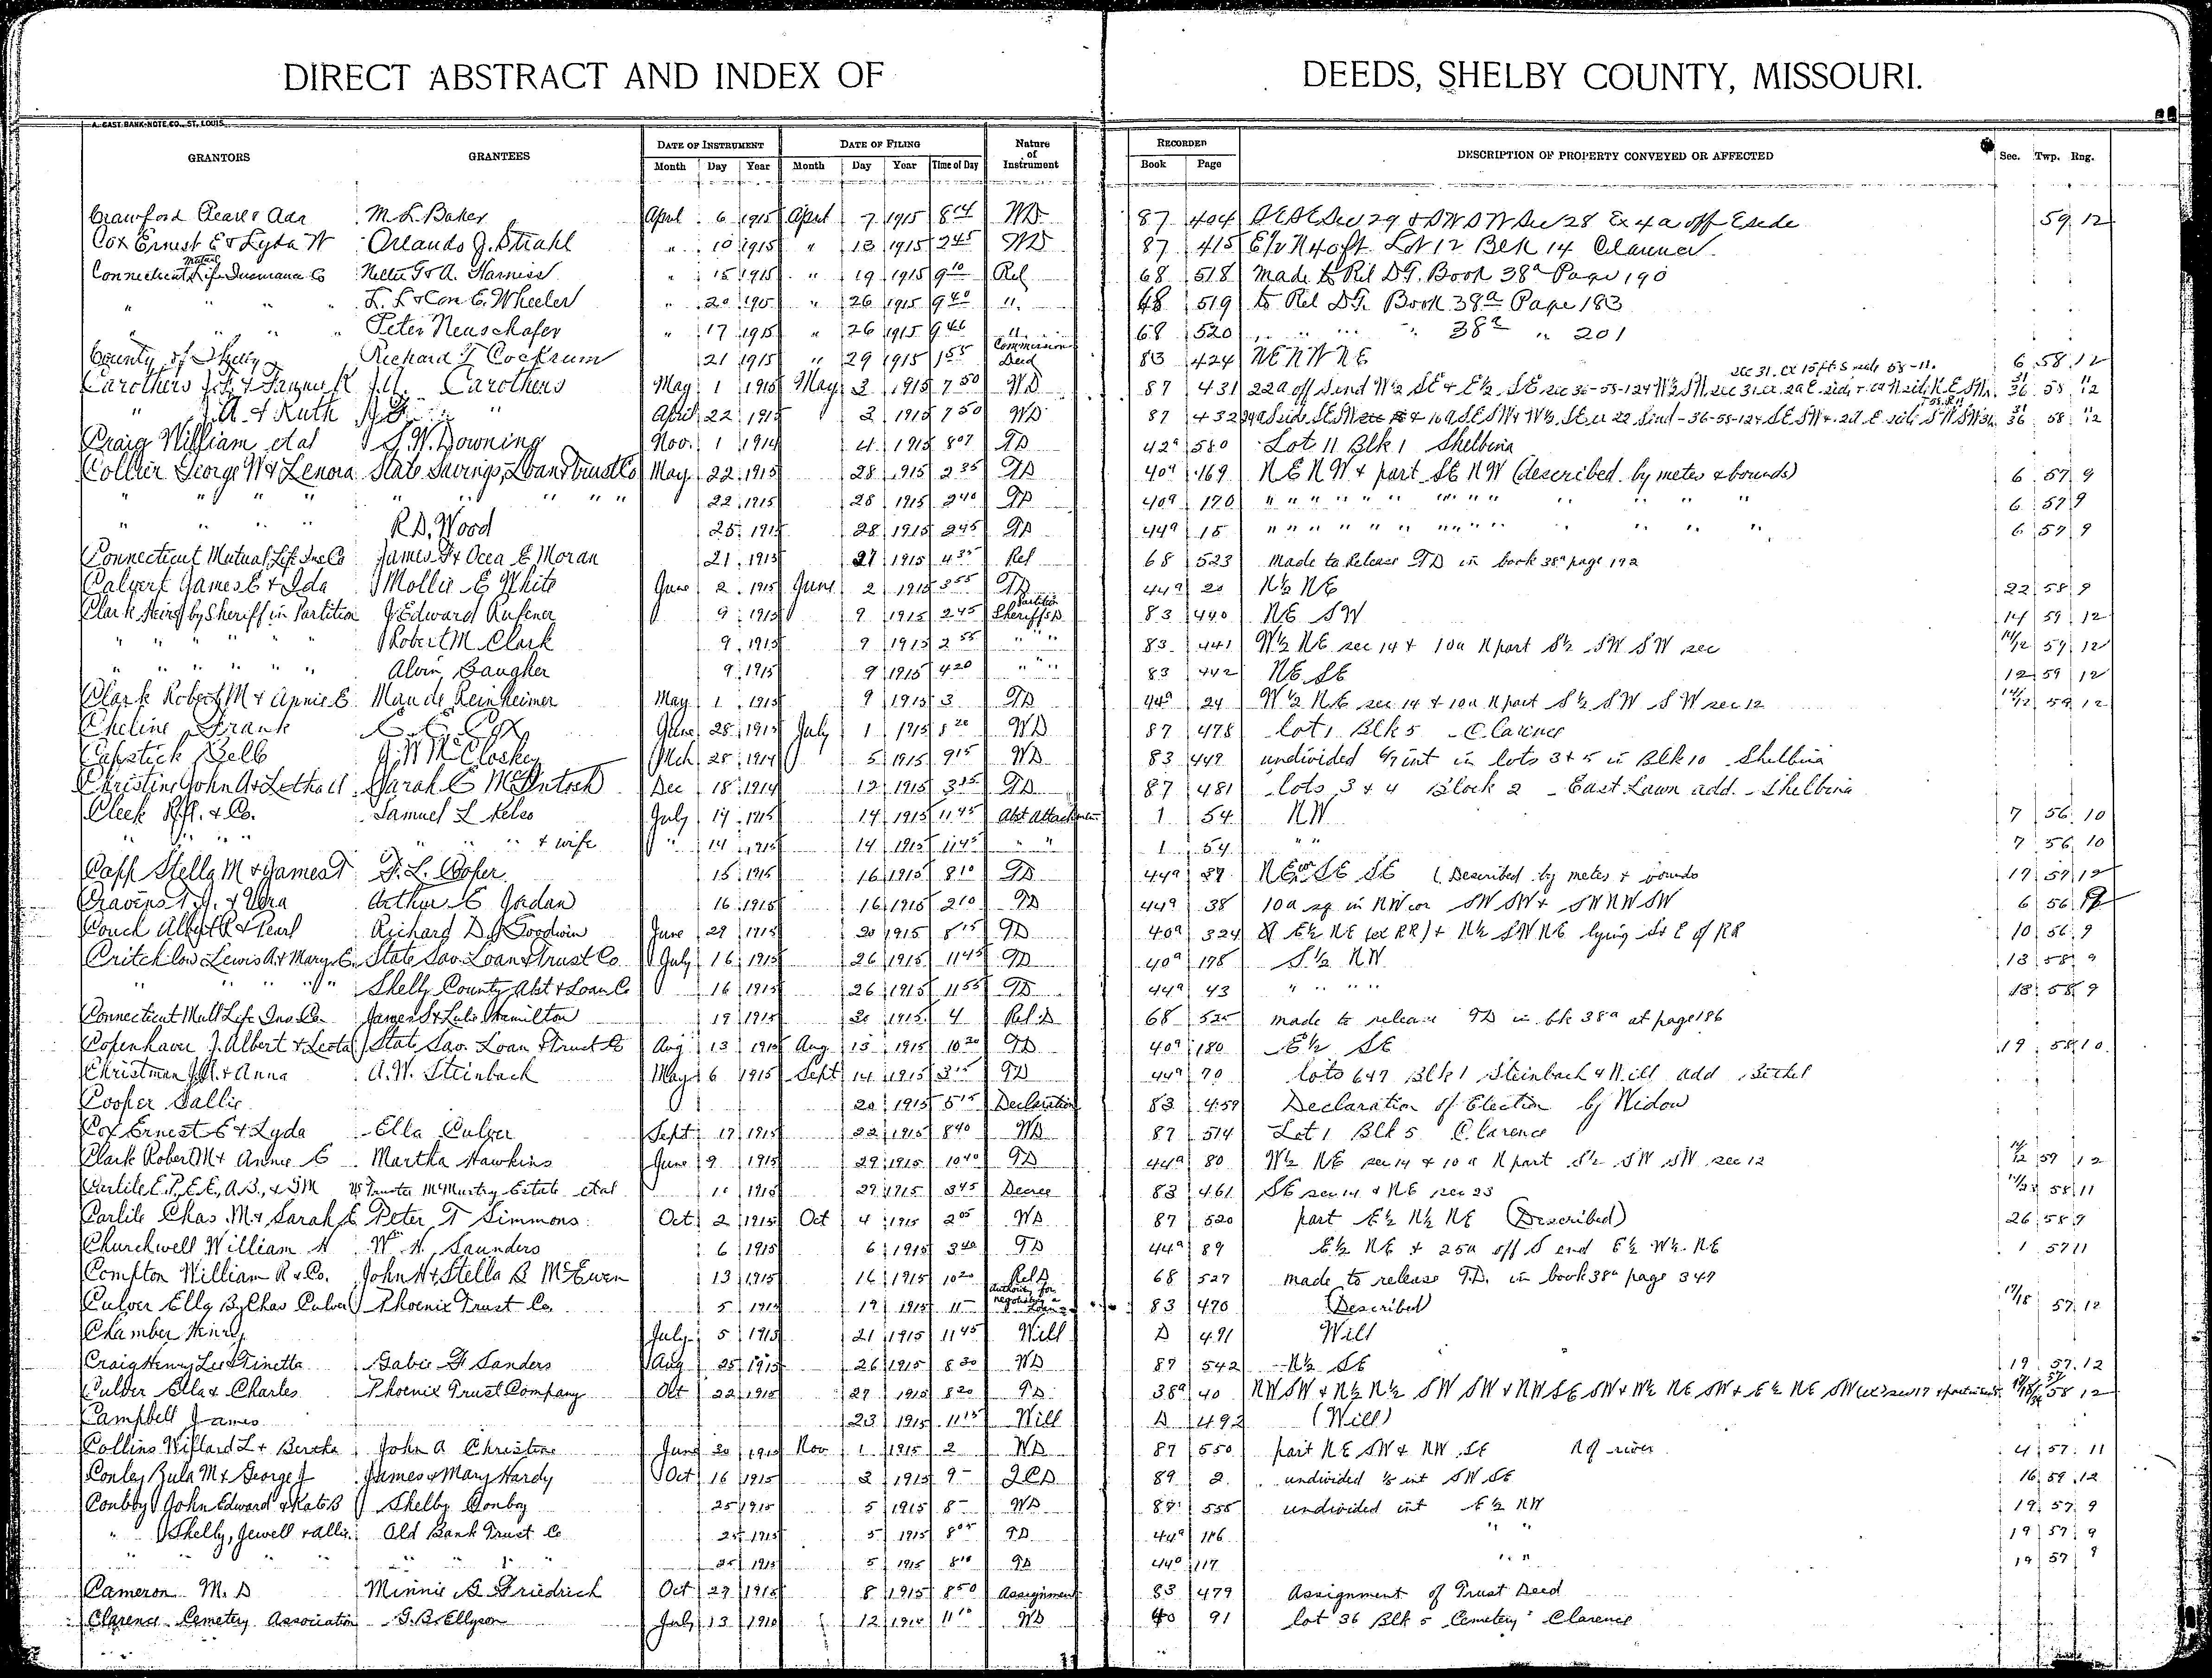 DIRECT ABSTRACT AND INDEX OF DEEDS, SHELBY COUNTY, MISSOURI.
A. GAST BANK-NOTE CO., ST. LOUIS.
GRANTORS GRANTEES DATE OF INSTRUMENT DATE OF FILING Nature of Instrument RECORDED DESCRIPTION OF PROPERTY CONVEYED OR AFFECTED Sec. Twp. Rng.
Month Day Year Month Day Year Time of Day Book Page
Crawford Pearl & Ada M. L. Baker April 6 1915 April 7 1915 8 14 WD 87 404 SESE Sec 29 & SWSW Sec 28 Ex 4a off E side 59 12
Cox Ernest E & Lyda W Orlando J. Strahl " 10 1915 " 13 1915 2 45 WD 87 415 Lot 12 Blk 14 Clarence
Connecticut Mutual Life Insurance Co A. Harniss " 15 1915 " 19 1915 9 10 Rel 68 518 Made to Rel DT. Book 38a Page 190
" " " L. L & Cora E. Wheeler " 20 1915 " 26 1915 9 40 " 68 519 to Rel DT. Book 38a Page 183
" " " Peter Neuschafer " 17 1915 " 26 1915 9 46 " 68 520 " " " " 38a " 201
County of Shelby Richard T Cockrum 21 1915 " 29 1915 1 55 Commission Deed 83 424 NE NW NE 6 58 12
Carothers J.A. Carothers May 1 1915 May 3 1915 7 50 WD 87 431 22a off S end W½ SE & E½ SE sec 36-58-12 58 12
" J.A. & Ruth " April 22 1915 3 1915 7 50 WD 87 432 58 12
Craig William etal S.W. Downing Nov. 1 1914 4 1915 8 07 TD 42a 580 Lot 11 Blk 1 Shelbina
Collier George W & Lenora State Savings, Loan & Trust Co May 22 1915 28 1915 2 35 TD 40a 169 NE NW & part SE NW (described by metes & bounds) 6 57 9
" " " " " " " " 22 1915 28 1915 2 40 TD 40a 170 " " " " " " " " " 6 57 9
" " " " R.D. Wood 25 1915 28 1915 2 45 TD 44a 15 " " " " " " " " " 6 57 9
Connecticut Mutual Life Ins Co James F & Ocea E Moran 21 1915 21 1915 4 35 Rel 68 523 Made to Release TD in book 38a page 192
Calvert James E & Ida Mollie E White June 2 1915 June 2 1915 3 55 TD 44a 20 N½ NE 22 58 9
Clark Heirs by Sheriff in Partition J Edward Rufener 9 1915 9 1915 2 45 Partition Sheriffs D 83 440 NE SW 14 59 12
" " " " " Robert M Clark 9 1915 9 1915 2 55 " " " 83 441 W½ NE sec 14 & 10a N part S½ SW SW sec 14/12 59 12
" " " " " Alvin Baugher 9 1915 9 1915 4 20 " " " 83 442 NE SE 12 59 12
Clark Robert M & Annie E Maude Reinheimer May 1 1915 9 1915 3 TD 44a 24 W½ NE sec 14 & 10a N part S½ SW SW sec 12 14/12 59 12
Cheline Frank C. C. Cox June 28 1915 July 1 1915 8 20 WD 87 478 lot 1 Blk 5 Clarence
Capstick Belle J.W McCloskey Mch 28 1914 5 1915 9 15 WD 83 449 undivided int in lots 3 & 5 in Blk 10 Shelbina
Christine John A & Letha A Sarah C McIntosh Dec 18 1914 12 1915 3 35 TD 87 481 lots 3 & 4 Block 2 East Lawn add. Shelbina
Cleek R.A. & Co. Samuel L Kelso July 14 1915 14 1915 11 45 Abst Attachment 1 54 NW 7 56 10
" " " " " & wife " 14 1915 14 1915 11 45 " " 1 54 " " 7 56 10
Capp Stella M & James T F. L. Cooper 15 1915 16 1915 8 10 TD 44a 37 NE cor SE SE (Described by metes & bounds 17 57 12
Cravens T.J. & Vera Arthur E Jordan 16 1915 16 1915 2 10 TD 44a 38 10a sq in NW cor SW SW & SW NW SW 6 56 9
Couch Albert R & Pearl Richard D. Goodwin June 29 1915 20 1915 8 15 TD 40a 324 E½ NE (ex RR) & N½ SW NE lying S & E of RR 10 56 9
Critchlow Lewis A & Mary E. State Sav. Loan & Trust Co July 16 1915 26 1915 11 45 TD 40a 178 S½ NW 18 58 9
" " " " Shelby County Abst & Loan Co 16 1915 26 1915 11 55 TD 44a 43 " " " " 18 58 9
Connecticut Mutl Life Ins Co James S & Lula Hamilton 19 1915 30 1915 4 Rel D 68 525 made to release TD in bk 38a at page 186
Copenhaver J. Albert & Leota State Sav. Loan & Trust Co Aug 13 1915 Aug 13 1915 10 20 TD 40a 180 E½ SE 19 58 10
Christman J.A. & Anna A.W. Steinbach May 6 1915 Sept 14 1915 3 15 TD 44a 70 lots 6 & 7 Blk 1 Steinbach & Will add Bethel
Cooper Sallie 20 1915 5 15 Declaration 83 459 Declaration of Election by Widow
Cox Ernest E & Lyda Ella Culver Sept 17 1915 22 1915 8 40 WD 87 514 Lot 1 Blk 5 Clarence
Clark Robert M & Annie E Martha Hawkins June 9 1915 29 1915 10 40 TD 44a 80 W½ NE sec 14 & 10a N part S½ SW SW sec 12 14/12 59 12
Carlile E.P., E.E., A.B., & G M vs Trustee McMurtry Estate etal 10 1915 29 1915 3 45 Decree 83 461 SE sec 14 & NE sec 23 14/23 58 11
Carlile Chas. M & Sarah E Peter T Simmons Oct 2 1915 Oct 4 1915 2 05 WD 87 520 part E½ N½ NE (Described) 26 58 9
Churchwell William H W. H. Saunders 6 1915 6 1915 3 40 TD 44a 89 E½ NE & 25a off S end E½ W½ NE 1 57 11
Compton William R & Co. John H & Stella B McEwen 13 1915 16 1915 10 20 Rel D 68 527 made to release T.D. in book 38a page 347
Culver Ella By Chas Culver Phoenix Trust Co. 5 1915 19 1915 11 Authority for negotiating a Loan 83 470 (Described) 17/18 57 12
Chamber Henry July 5 1915 21 1915 11 45 Will D 491 Will
Craig Henry Lee & Finetta Gabie F Sanders Aug 25 1915 26 1915 8 30 WD 87 542 N½ SE 19 57 12
Culver Ella & Charles Phoenix Trust Company Oct 22 1915 27 1915 8 20 TD 38a 40 NW SW & N½ N½ SW SW & NW SE SW & W½ NE SW & E½ NE SW 58 12
Campbell James 23 1915 11 15 Will D 492 (Will)
Collins Willard L & Bertha John A Christine June 30 1915 Nov 1 1915 2 WD 87 550 part NE SW & NW SE N of river 4 57 11
Conley Zula M & George J James & Mary Hardy Oct 16 1915 3 1915 9 QCD 89 2 undivided int SW SE 16 59 12
Conboy John Edward & Kate B Shelby Conboy 25 1915 5 1915 8 WD 87 555 undivided int E½ NW 19 57 9
" Shelby, Jewell & Allie Old Bank Trust Co 25 1915 5 1915 8 05 TD 44a 116 " " 19 57 9
" " " " " " 25 1915 5 1915 8 10 TD 44a 117 " " 19 57 9
Cameron M. D Minnie G Friedrich Oct 29 1915 8 1915 8 50 Assignment 83 479 Assignment of Trust Deed
Clarence Cemetery Association G.B. Ellyson July 13 1910 12 1915 11 10 WD 40 91 lot 36 Blk 5 Cemetery Clarence